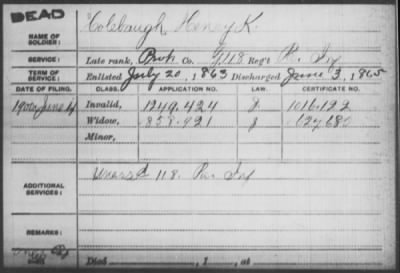 DEAD
NAME OF SOLDIER: Colebaugh Henry K.
SERVICE: Late rank, Co. 118 Reg't Pa. Inf
TERM OF SERVICE: Enlisted July 20, 1863 Discharged June 3, 1865
DATE OF FILING. CLASS. APPLICATION NO. LAW. CERTIFICATE NO.
1900 June 4 Invalid, 1249.424 J 1016.122
Widow, 858.921 J 627680
Minor,
ADDITIONAL SERVICES: 118. Pa. Inf
REMARKS:
Died , 1 , at